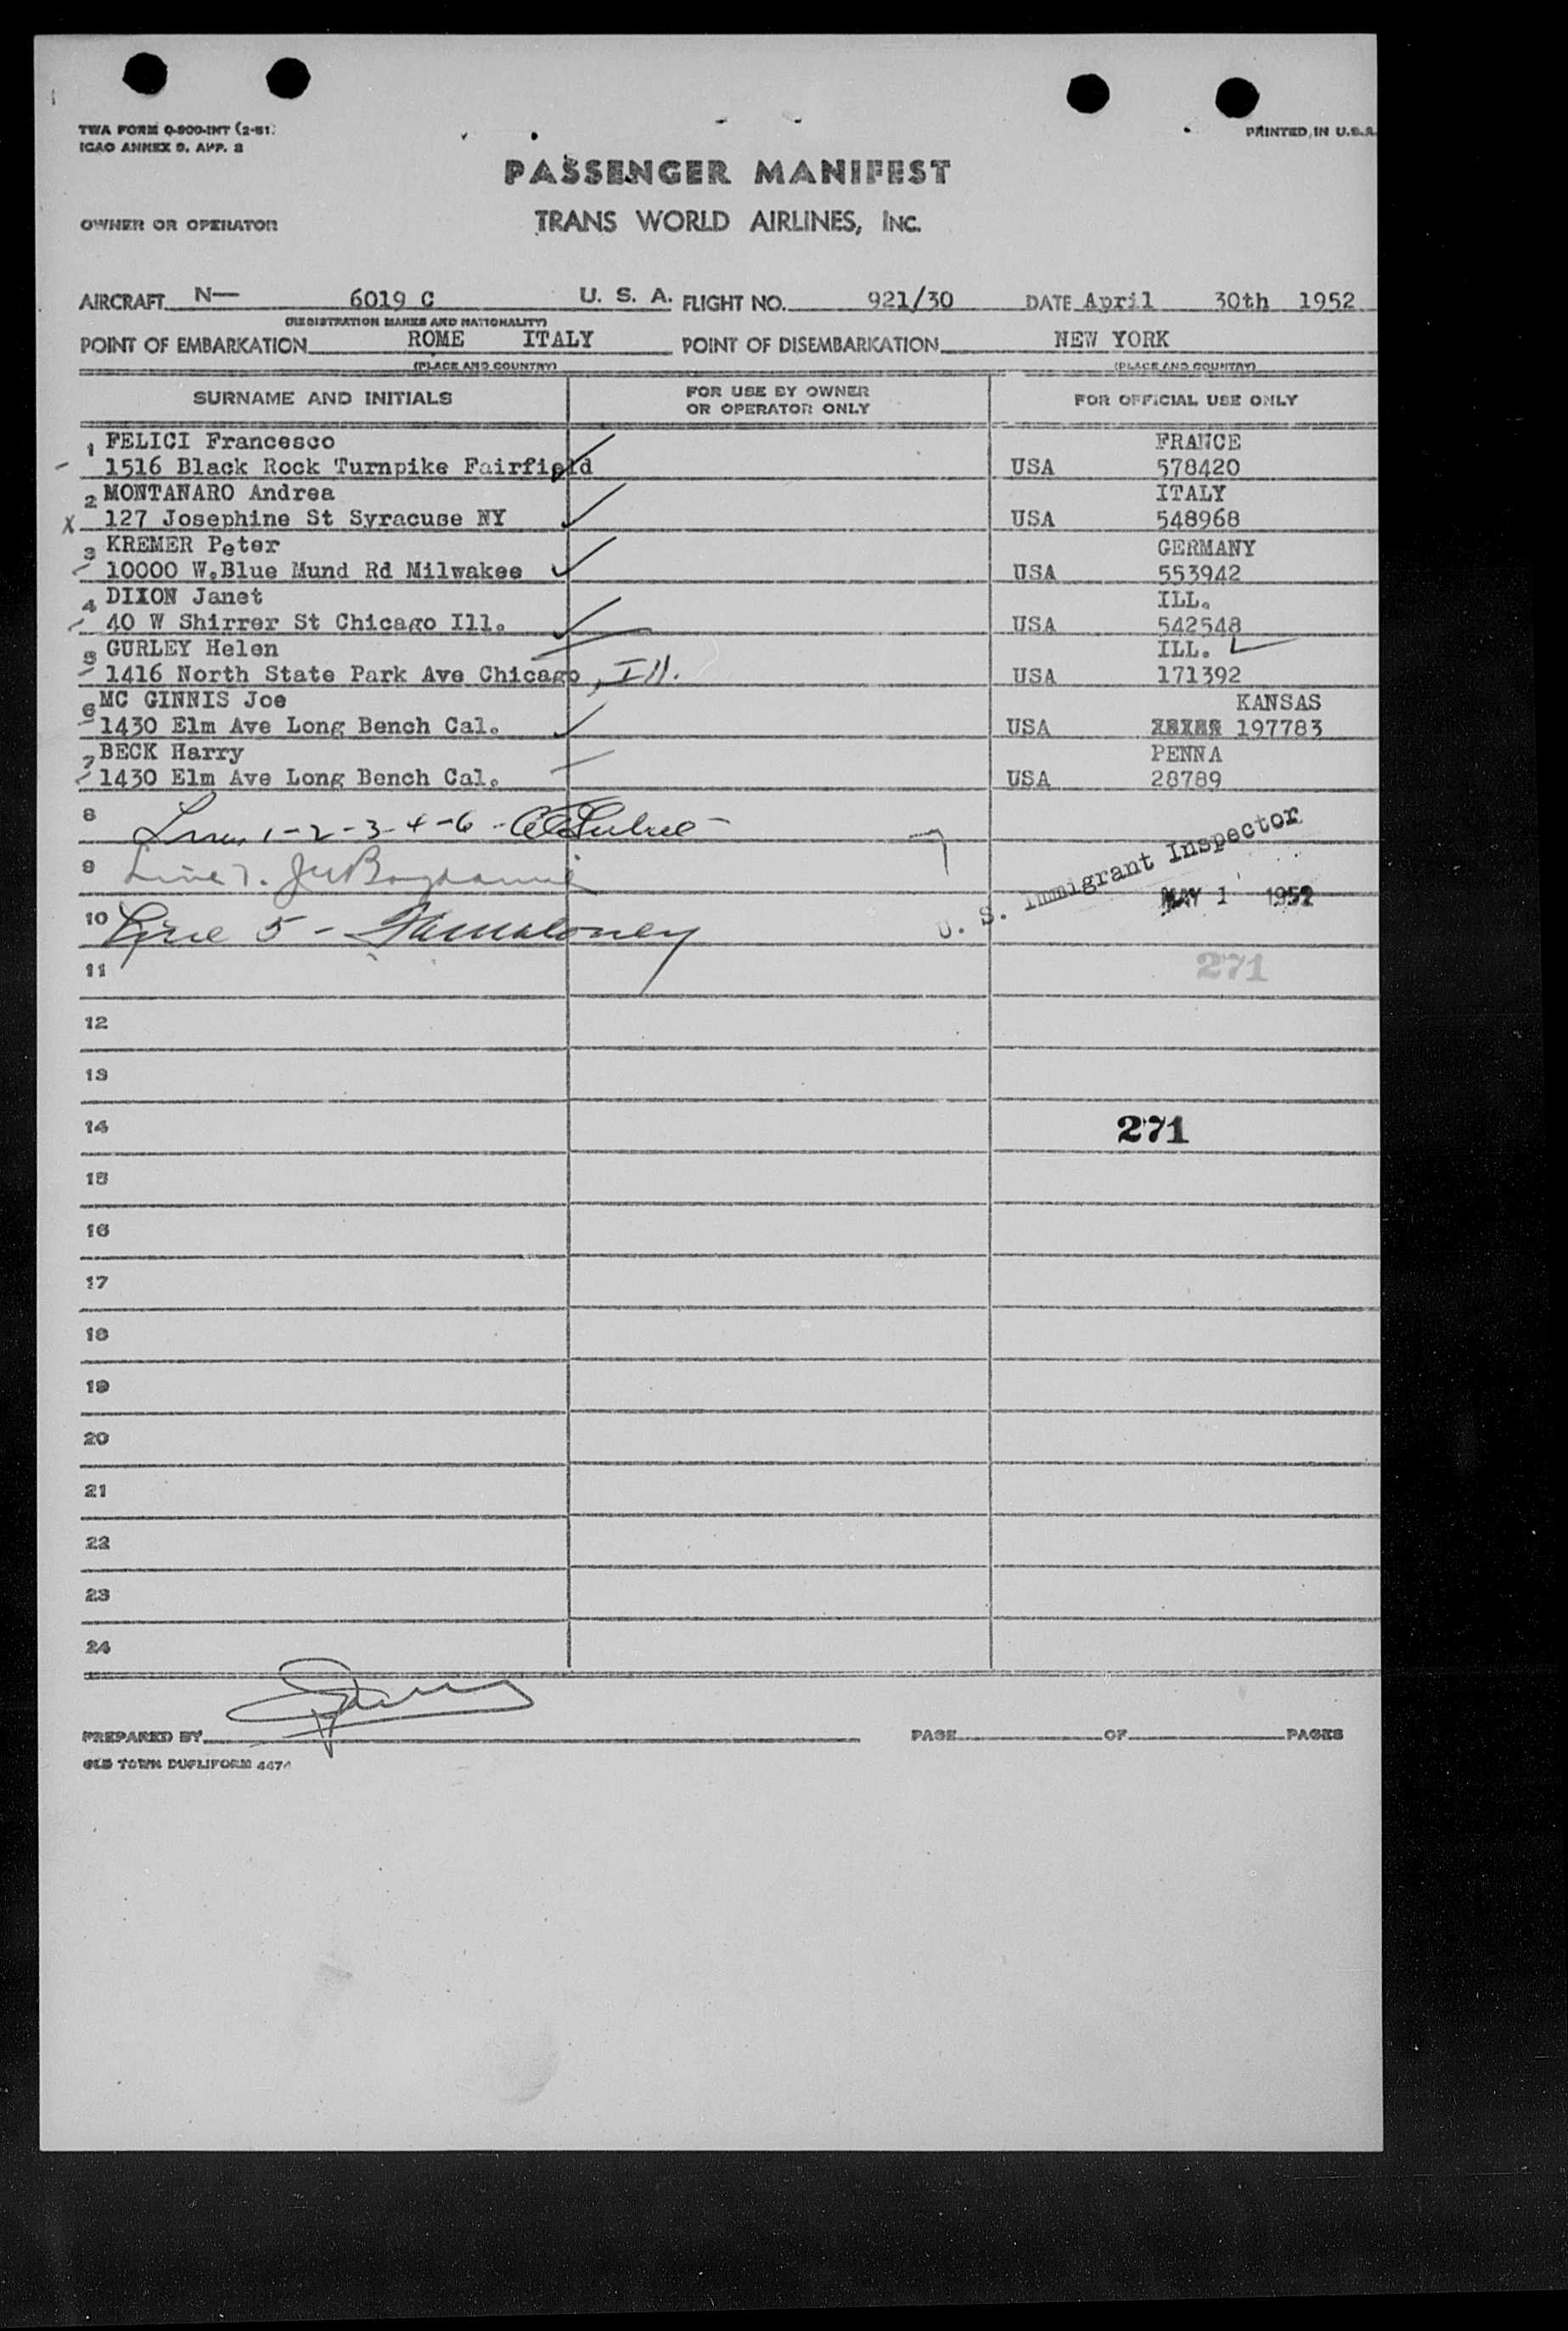 TWA FORM O-900-INT (2-51)
ICAO ANNEX 9, APP. 3
PRINTED IN U.S.A.
PASSENGER MANIFEST
OWNER OR OPERATOR TRANS WORLD AIRLINES, INC.
AIRCRAFT N— 6019 C U. S. A. FLIGHT NO. 921/30 DATE April 30th 1952
(REGISTRATION MARKS AND NATIONALITY)
POINT OF EMBARKATION ROME ITALY POINT OF DISEMBARKATION NEW YORK
(PLACE AND COUNTRY) (PLACE AND COUNTRY)
SURNAME AND INITIALS FOR USE BY OWNER OR OPERATOR ONLY FOR OFFICIAL USE ONLY
1 FELICI Francesco FRANCE
1516 Black Rock Turnpike Fairfield USA 578420
2 MONTANARO Andrea ITALY
X 127 Josephine St Syracuse NY USA 548968
3 KREMER Peter GERMANY
10000 W.Blue Mund Rd Milwakee USA 553942
4 DIXON Janet ILL.
40 W Shirrer St Chicago Ill. USA 542548
5 GURLEY Helen ILL.
1416 North State Park Ave Chicago, Ill. USA 171392
6 MC GINNIS Joe KANSAS
1430 Elm Ave Long Bench Cal. USA 197783
7 BECK Harry PENNA
1430 Elm Ave Long Bench Cal. USA 28789
8 Lines 1-2-3-4-6 -
9 Line 7.
U. S. Immigrant Inspector
MAY 1 1952
10 Line 5 - Maloney
11 271
12
13
14 271
15
16
17
18
19
20
21
22
23
24
PREPARED BY PAGE OF PAGES
OLD TOWN DUPLIFORM 4474